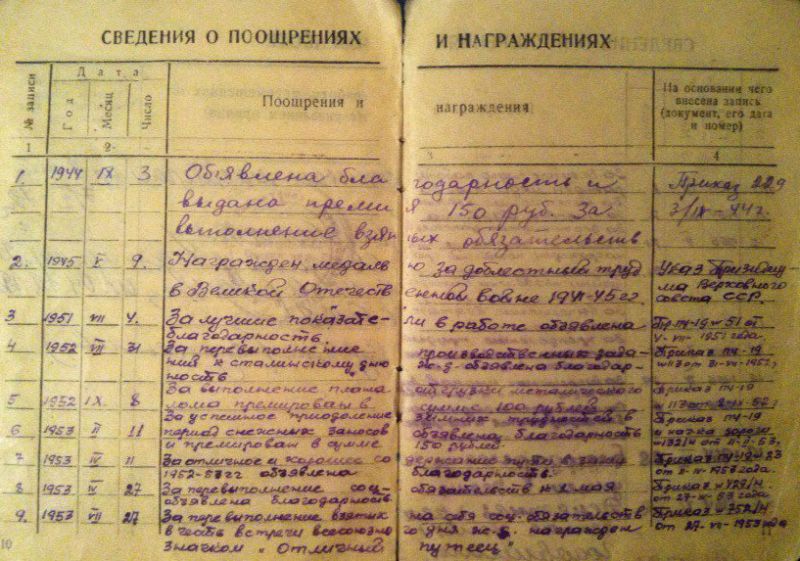 СВЕДЕНИЯ О ПООЩРЕНИЯХ И НАГРАЖДЕНИЯХ
№ записи Дата Поощрения и награждения На основании чего внесена запись (документ, его дата и номер)
Год Месяц Число
1 2 3 4
1. 1944 IX 3 Объявлена благодарность и Приказ 229
выдана премия 150 руб. за 3/IX-44г.
выполнение взятых обязательств
2. 1945 9. Награжден медалью за доблестный труд Указ Президиу
в Великой Отечественной войне 1941-45 гг. ма Верховного
совета ССР.
3 1951 VII 4. За лучшие показатели в работе объявлена Пр. ПЧ-19 № 51 от
благодарность 1951 года.
4 1952 VII 31 За перевыполнение производственных зада- Приказ ПЧ-19
ний к сталинскому дню ж.д. объявлена благодар-
ность
5 1952 IX. 8 За выполнение плана отгрузки металического Приказ ПЧ-19
лома премирован в сумме 100 рублей
6 1953 II 11 За успешное приодоление зимних трудностей в Приказ ПЧ-19
период снежных заносов объявлена благодарность
и премирован в сумме 150 рублей от 11-II-53.
7 1953 IV 11 За отличное и хорошее со держание пути в зиму Приказ ПЧ-19 № 23
1952-53 гг объявлена благодарность. 1953 года.
8 1953 IV 27 За перевыполнение соц- обязательств к 1 мая Приказ
объявлена благодарность
9. 1953 VII 27 За перевыполнение взятых на себя соц. обязательств Приказ № 752/Н
в честь встречи всесоюзно го дня ж.д. награжден от 27-VII-1953 года
Значком „Отличный путеец"
10 11